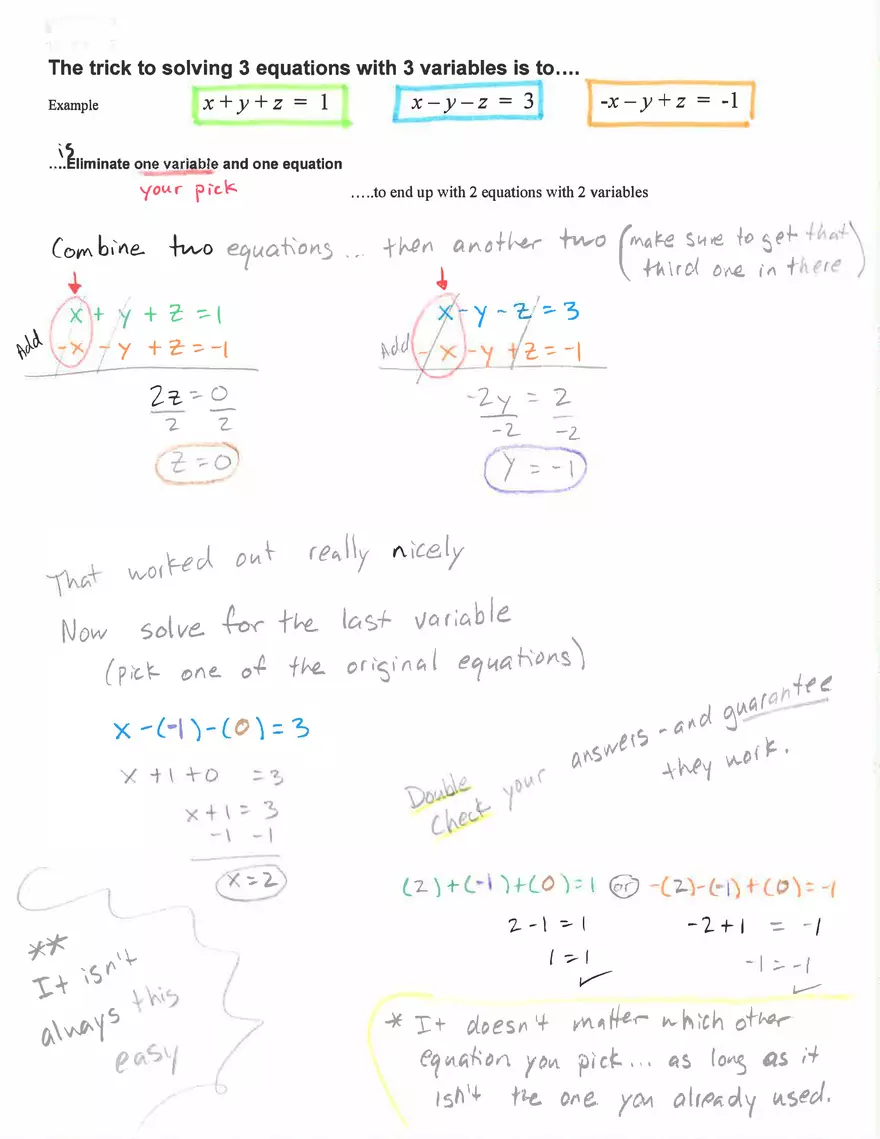 The trick to solving 3 equations with 3 variables is to….
Example
x + y + z = 1
x − y − z = 3
-x − y + z = -1
is
….Eliminate one variable and one equation
your pick
…..to end up with 2 equations with 2 variables
Combine two equations ... then another two (make sure to get that third one in there)
Add
x + y + z = 1
-x - y + z = -1
2z = 0
2 2
z = 0
Add
x - y - z = 3
- x - y + z = -1
-2y = 2
-2 -2
y = -1
That worked out really nicely
Now solve for the last variable
(pick one of the original equations)
x -(-1)-(0) = 3
x + 1 + 0 = 3
x + 1 = 3
-1 -1
x = 2
Double Check your answers - and guarantee
they work.
(2)+(-1)+(0)=1 or -(2)-(-1)+(0)=-1
2 - 1 = 1
1 = 1 ✓
-2 + 1 = -1
-1 = -1 ✓
**
It isn't
always this
easy
* It doesn't matter which other
equation you pick... as long as it
isn't the one you already used.